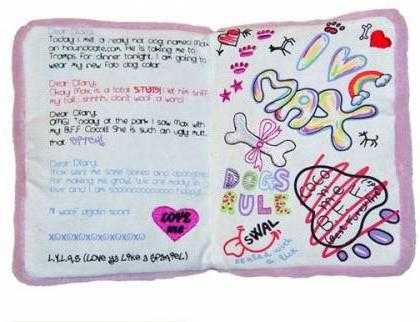 Dear Diary:
Today I met a really hot dog named Max
on hounddate.com. He is taking me to
Tramps for dinner tonight. I am going to
wear my new faux dog collar
Dear Diary:
Okay Max is a total STUD! I let him sniff
my tail...shhhh, don't woof a word
Dear Diary:
OMG! Today at the park I saw Max with
my B.F.F Coco!! She is such an ugly mutt,
that
Dear Diary:
Max sent me some bones and apologized
for making me growl. We are madly in
love and I am
I'll woof again soon!
XOXOXOXOXOXOXOXO
L.Y.L.A.S (Love ya Like a Spaniel)
LOVE
me
I
MAX
DOGS
RULE
SWAL
sealed with
a lick
Coco
me
B.F.F